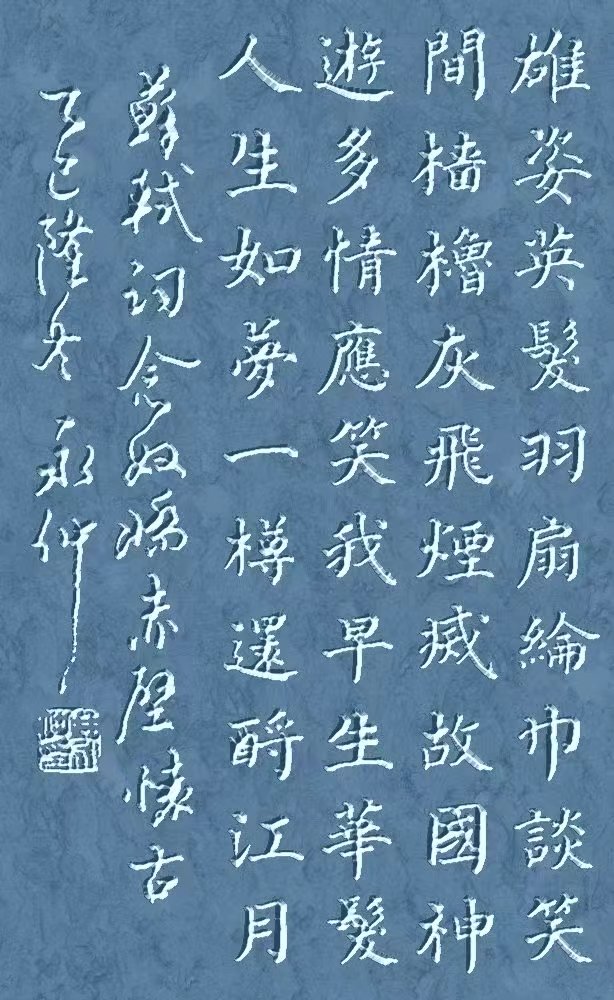 雄姿英髮羽扇綸巾談笑
間檣櫓灰飛煙滅故國神
遊多情應笑我早生華髮
人生如夢一樽還酹江月
蘇軾詞念奴嬌赤壁懷古
乙巳隆冬永仲